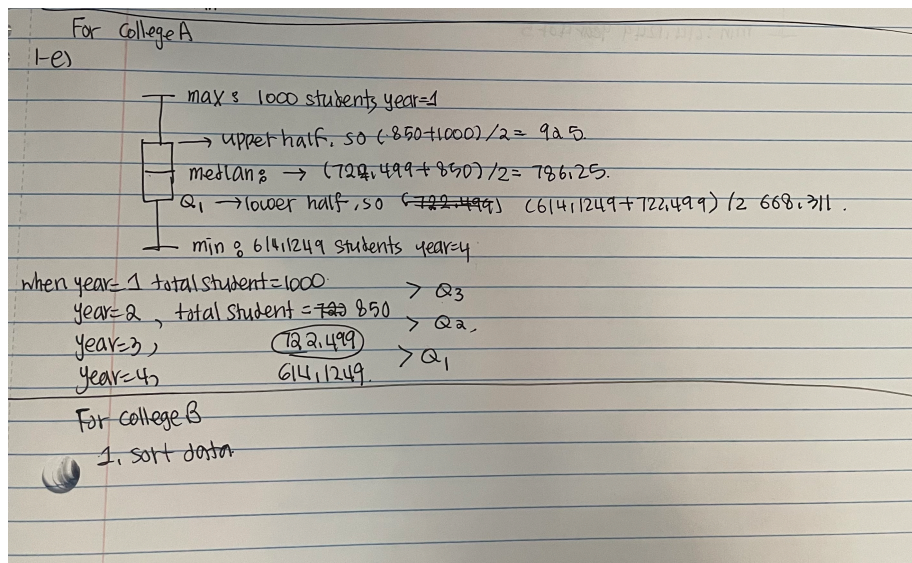 For College A
1-e)
max : 1000 students, year=1
→ upper half, so (850+1000)/2= 925.
median: → (722.499+850)/2= 786.25.
Q1 →lower half, so (722.499) (614.1249+722.499)/2 668.311.
min : 614.1249 students year=4
when year= 1 total student=1000
> Q3
year=2, total student = 722 850
> Q2,
year=3, 722.499
> Q1
year=4, 614.1249.
For college B
1. sort data.